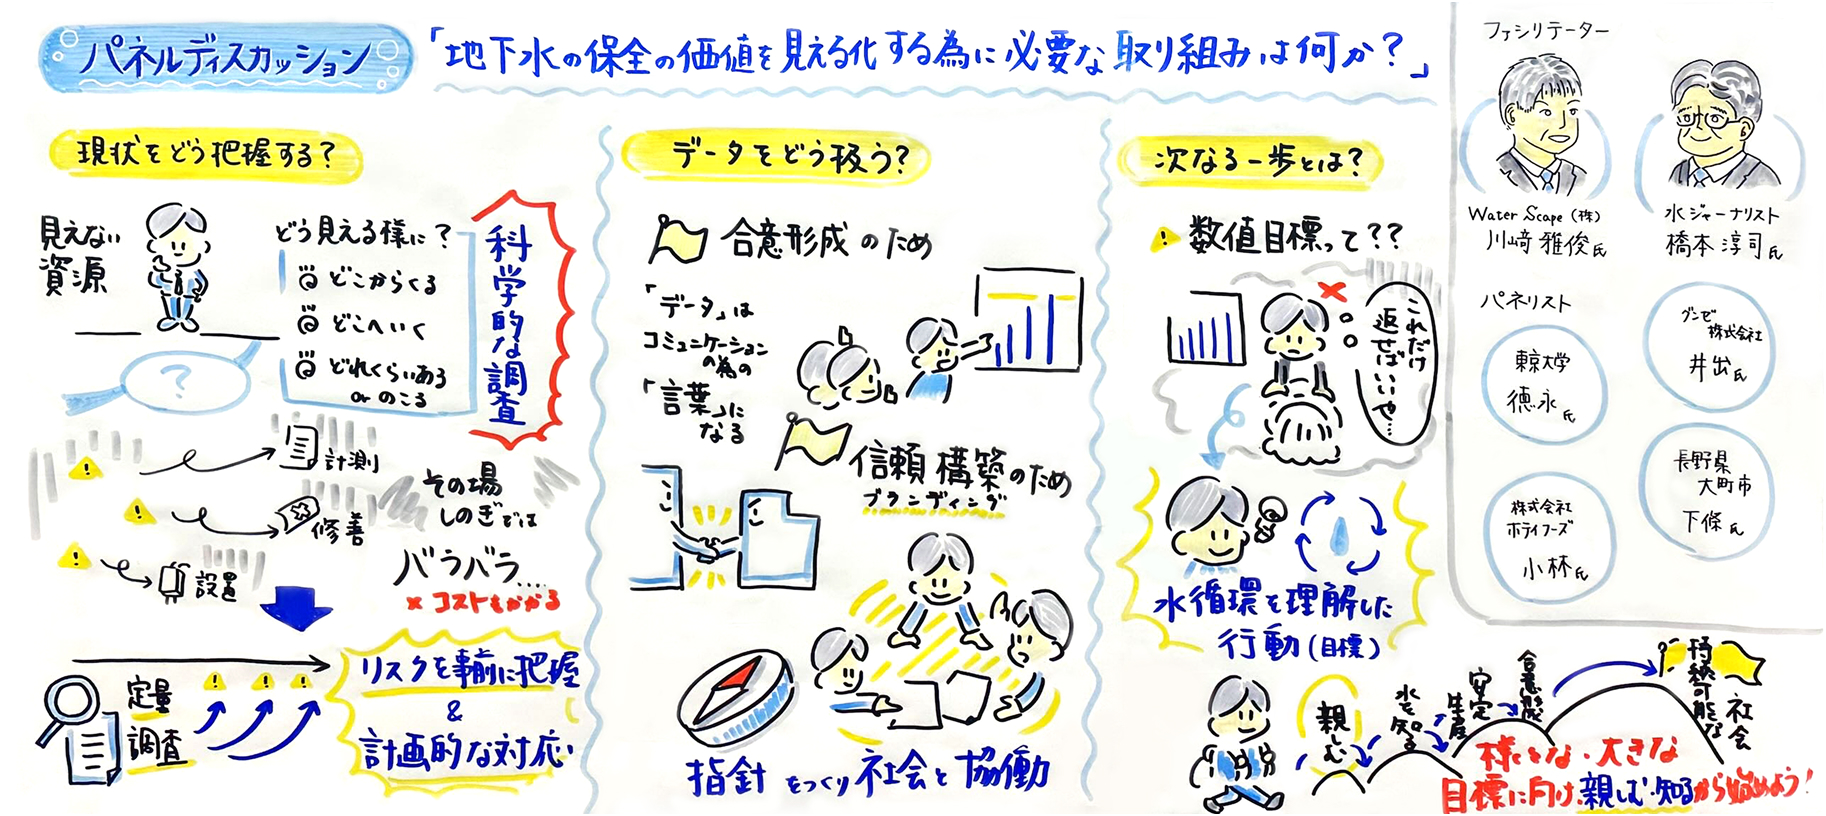 パネルディスカッション
「地下水の保全の価値を見える化する為に必要な取り組みは何か?」
現状をどう把握する?
見えない
資源
どう見える様に?
どこからくる
どこへいく
どれくらいある
or のこる
科学的な調査
?
計測
修善
設置
その場
しのぎでは
バラバラ....
× コストもかかる
定量
調査
リスクを事前に把握
&
計画的な対応
データをどう扱う?
合意形成のため
「データ」は
コミュニケーション
の為の
「言葉」に
なる
信頼構築のため
ブランディング
指針をつくり社会と協働
次なる一歩とは?
数値目標って??
これだけ
返せばいいや…
水循環を理解した
行動(目標)
親しむ
水を知る
安定
生産
合意形成
持続可能な
社会
様々な・大きな
目標に向け、親しむ・知るから始めよう!
ファシリテーター
Water Scape(株)
川﨑 雅俊氏
水ジャーナリスト
橋本 淳司氏
パネリスト
東京大学
徳永氏
グンゼ
株式会社
井出氏
株式会社
ホライフーズ
小林氏
長野県
大町市
下條氏